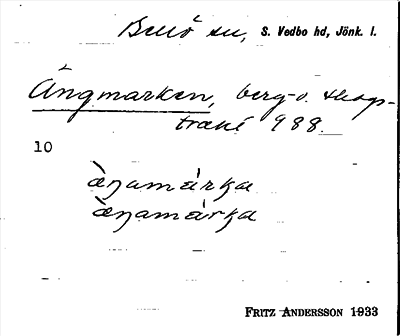 Bellö sn, S. Vedbo hd, Jönk. l.
Ängmarken, berg- o. skogs-
trakt 988.
10
àŋamárka
àŋamárka
FRITZ ANDERSSON 1933